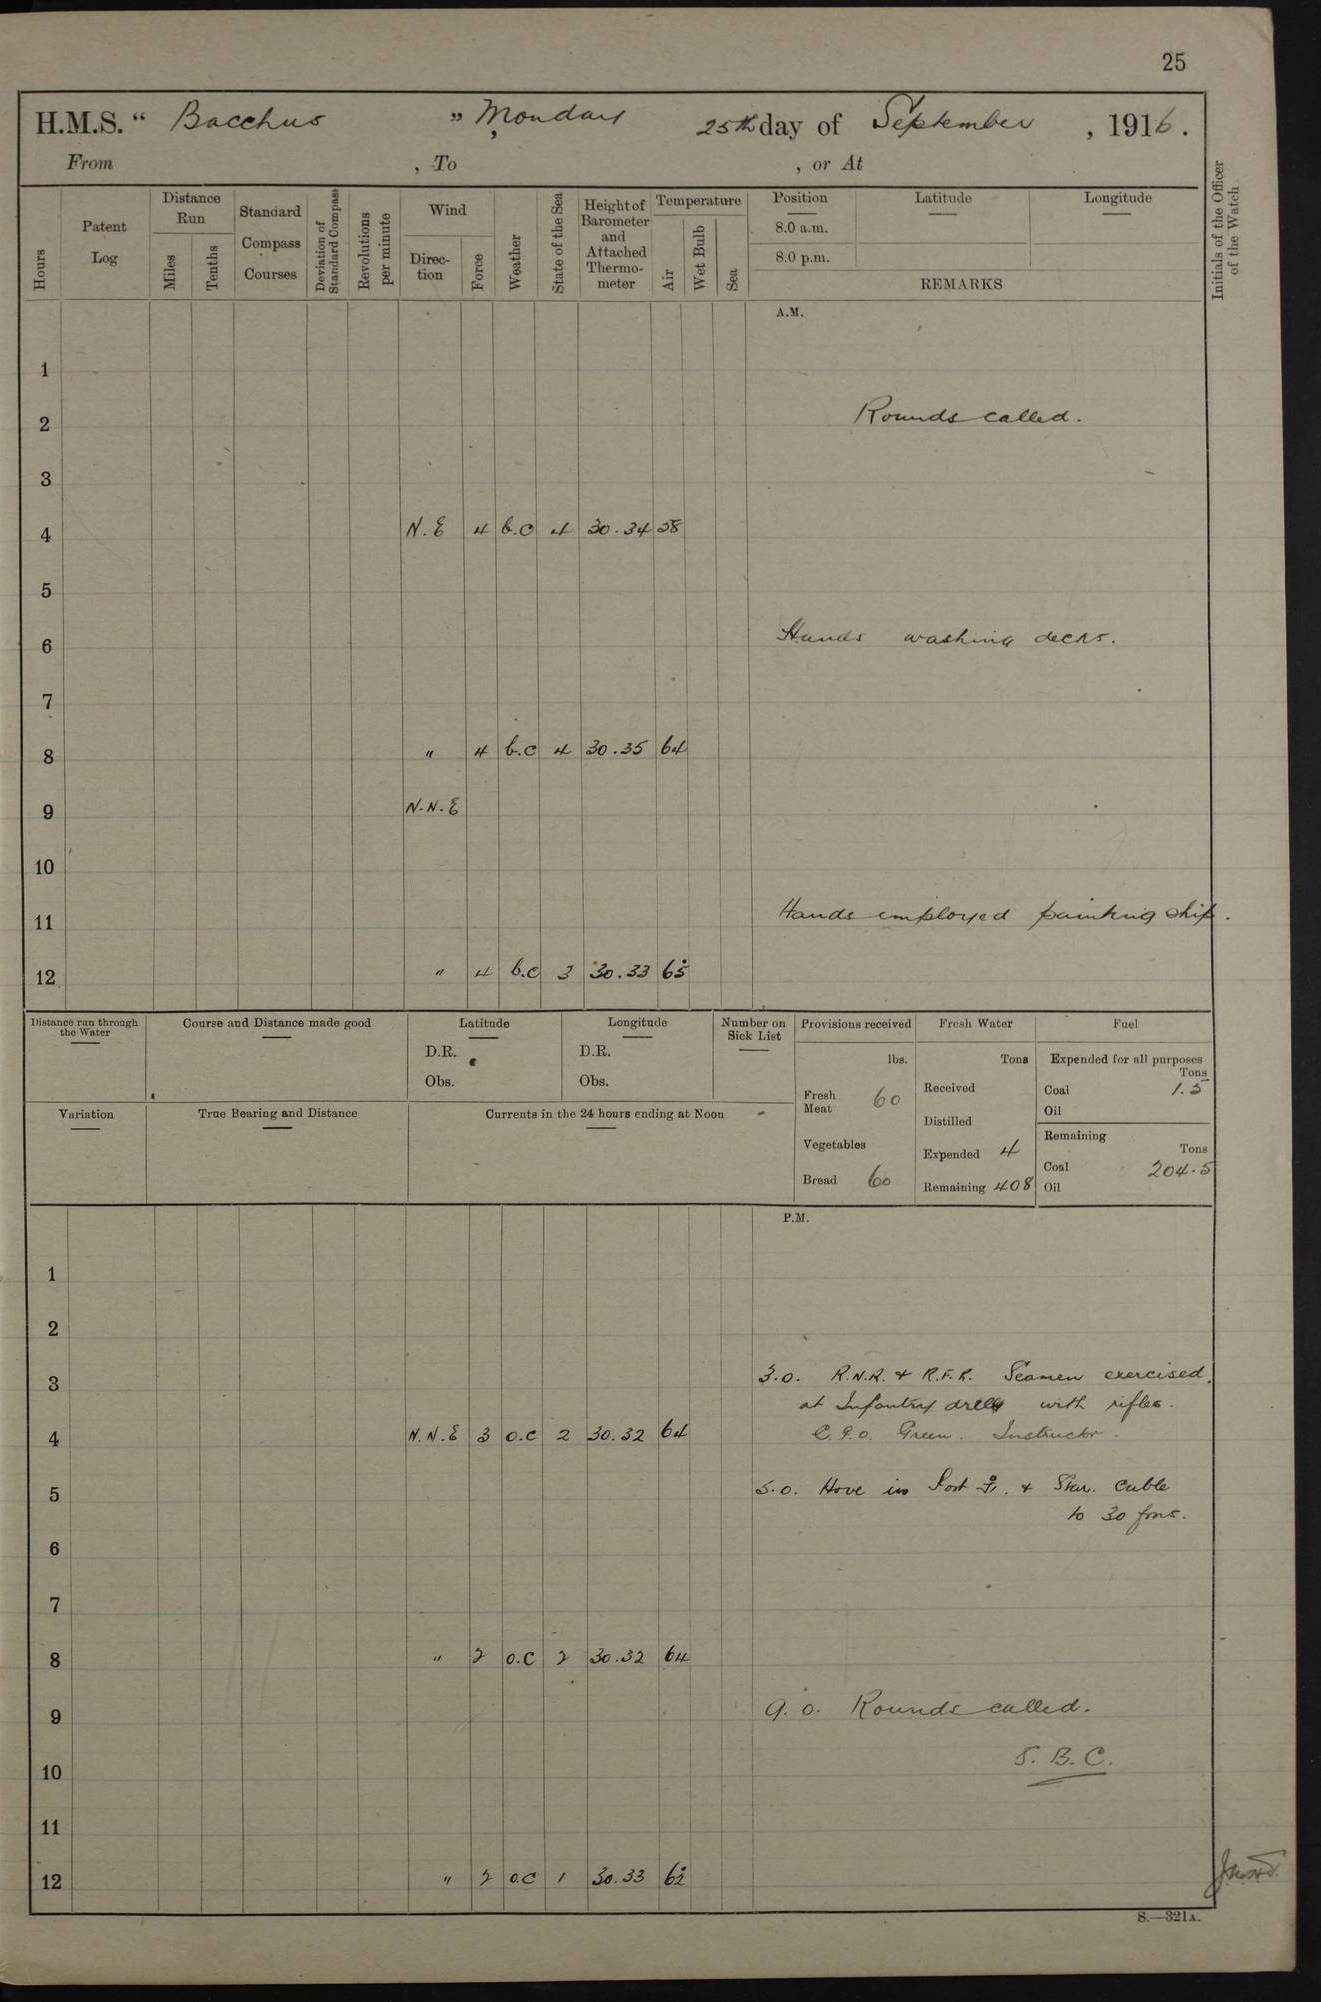 25
H.M.S. “ Bacchus ” , Monday 25th day of September , 1916.
From , To , or At
Hours
Patent Log
Distance Run
Miles
Tenths
Standard Compass Courses
Deviation of Standard Compass
Revolutions per minute
Wind
Direction
Force
Weather
State of the Sea
Height of Barometer and Attached Thermometer
Temperature
Air
Wet Bulb
Sea
Position
8.0 a.m.
8.0 p.m.
Latitude
Longitude
REMARKS
Initials of the Officer of the Watch
A.M.
1
2 Rounds called.
3
4 N.E 4 b.c 4 30.34 58
5
6 Hands washing decks.
7
8 " 4 b.c 4 30.35 64
9 N.N.E
10
11 Hands employed painting ship.
12 " 4 b.c 3 30.33 65
Distance run through the Water
Course and Distance made good
Latitude
D.R.
Obs.
Longitude
D.R.
Obs.
Number on Sick List
Provisions received
lbs.
Fresh Meat 60
Vegetables
Bread 60
Fresh Water
Tons
Received
Distilled
Expended 4
Remaining 408
Fuel
Expended for all purposes
Tons
Coal 1.5
Oil
Remaining
Tons
Coal 204.5
Oil
Variation
True Bearing and Distance
Currents in the 24 hours ending at Noon
P.M.
1
2
3 3.0. R.N.R. & R.F.R. Seamen exercised.
at Infantry drill with rifles.
4 N.N.E 3 o.c 2 30.32 64 Green. Instructor.
5 5.0. Hove in Port & Star. Cable
to 30 fms.
6
7
8 " 2 o.c 2 30.32 64
9 9.0. Rounds called.
10 S.B.C.
11
12 " 2 o.c 1 30.33 62
S.—321A.